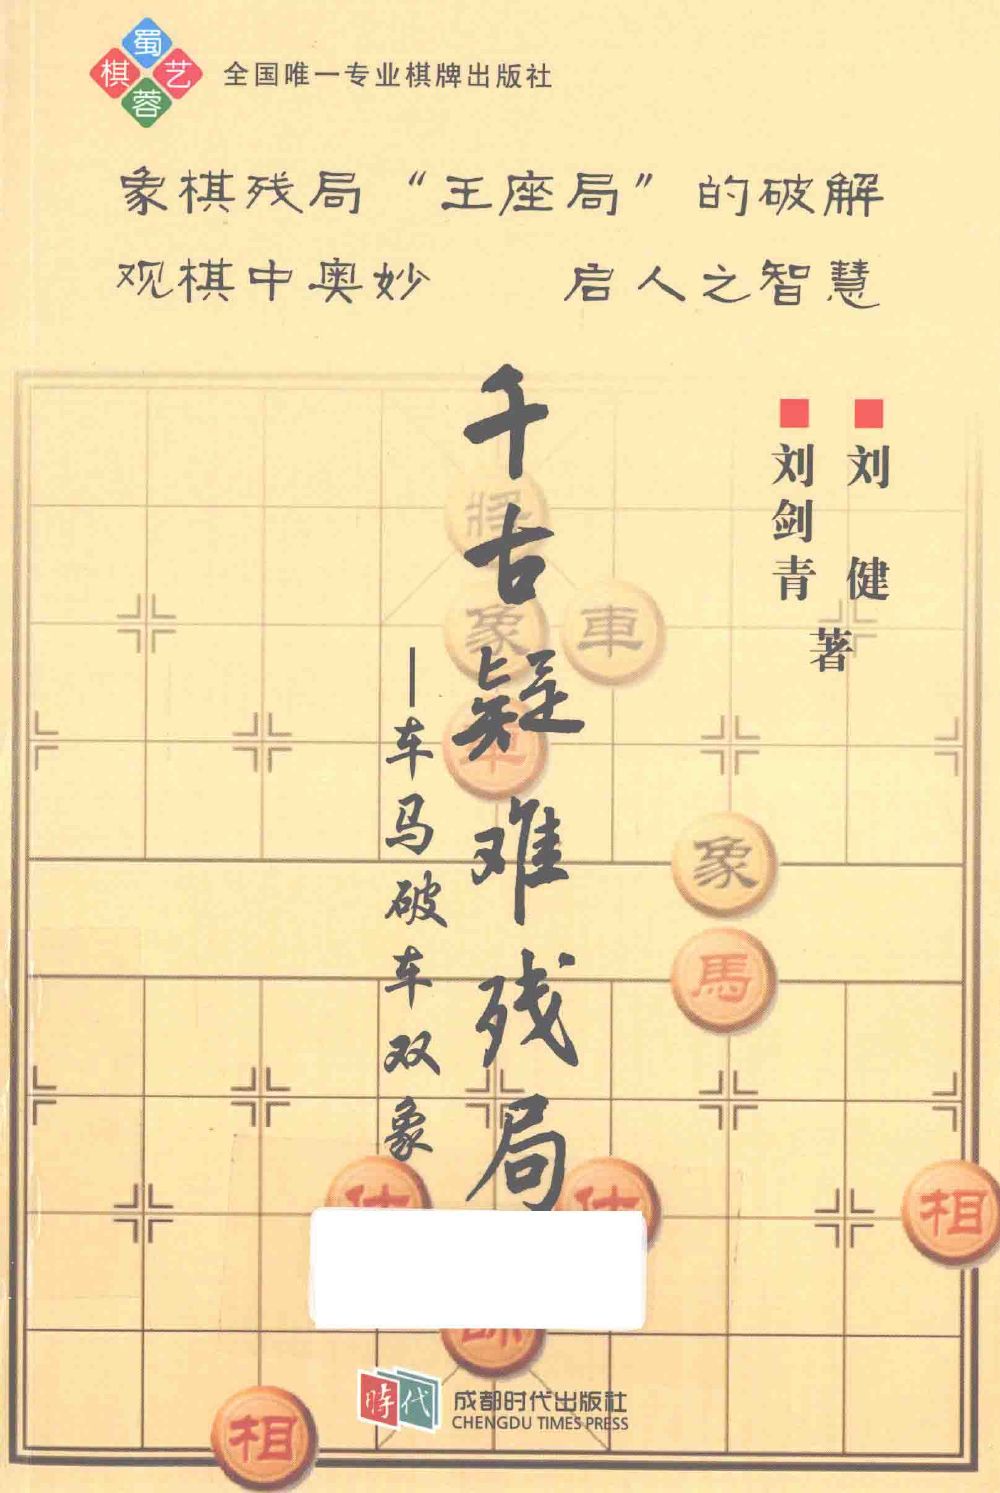 蜀
棋 艺
蓉
全国唯一专业棋牌出版社
象棋残局“王座局”的破解
观棋中奥妙 启人之智慧
千古疑难残局
—车马破车双象
刘健
刘剑青
著
將
象 車
车
象
馬
仕 仕 相
帥
相
時代
成都时代出版社
CHENGDU TIMES PRESS